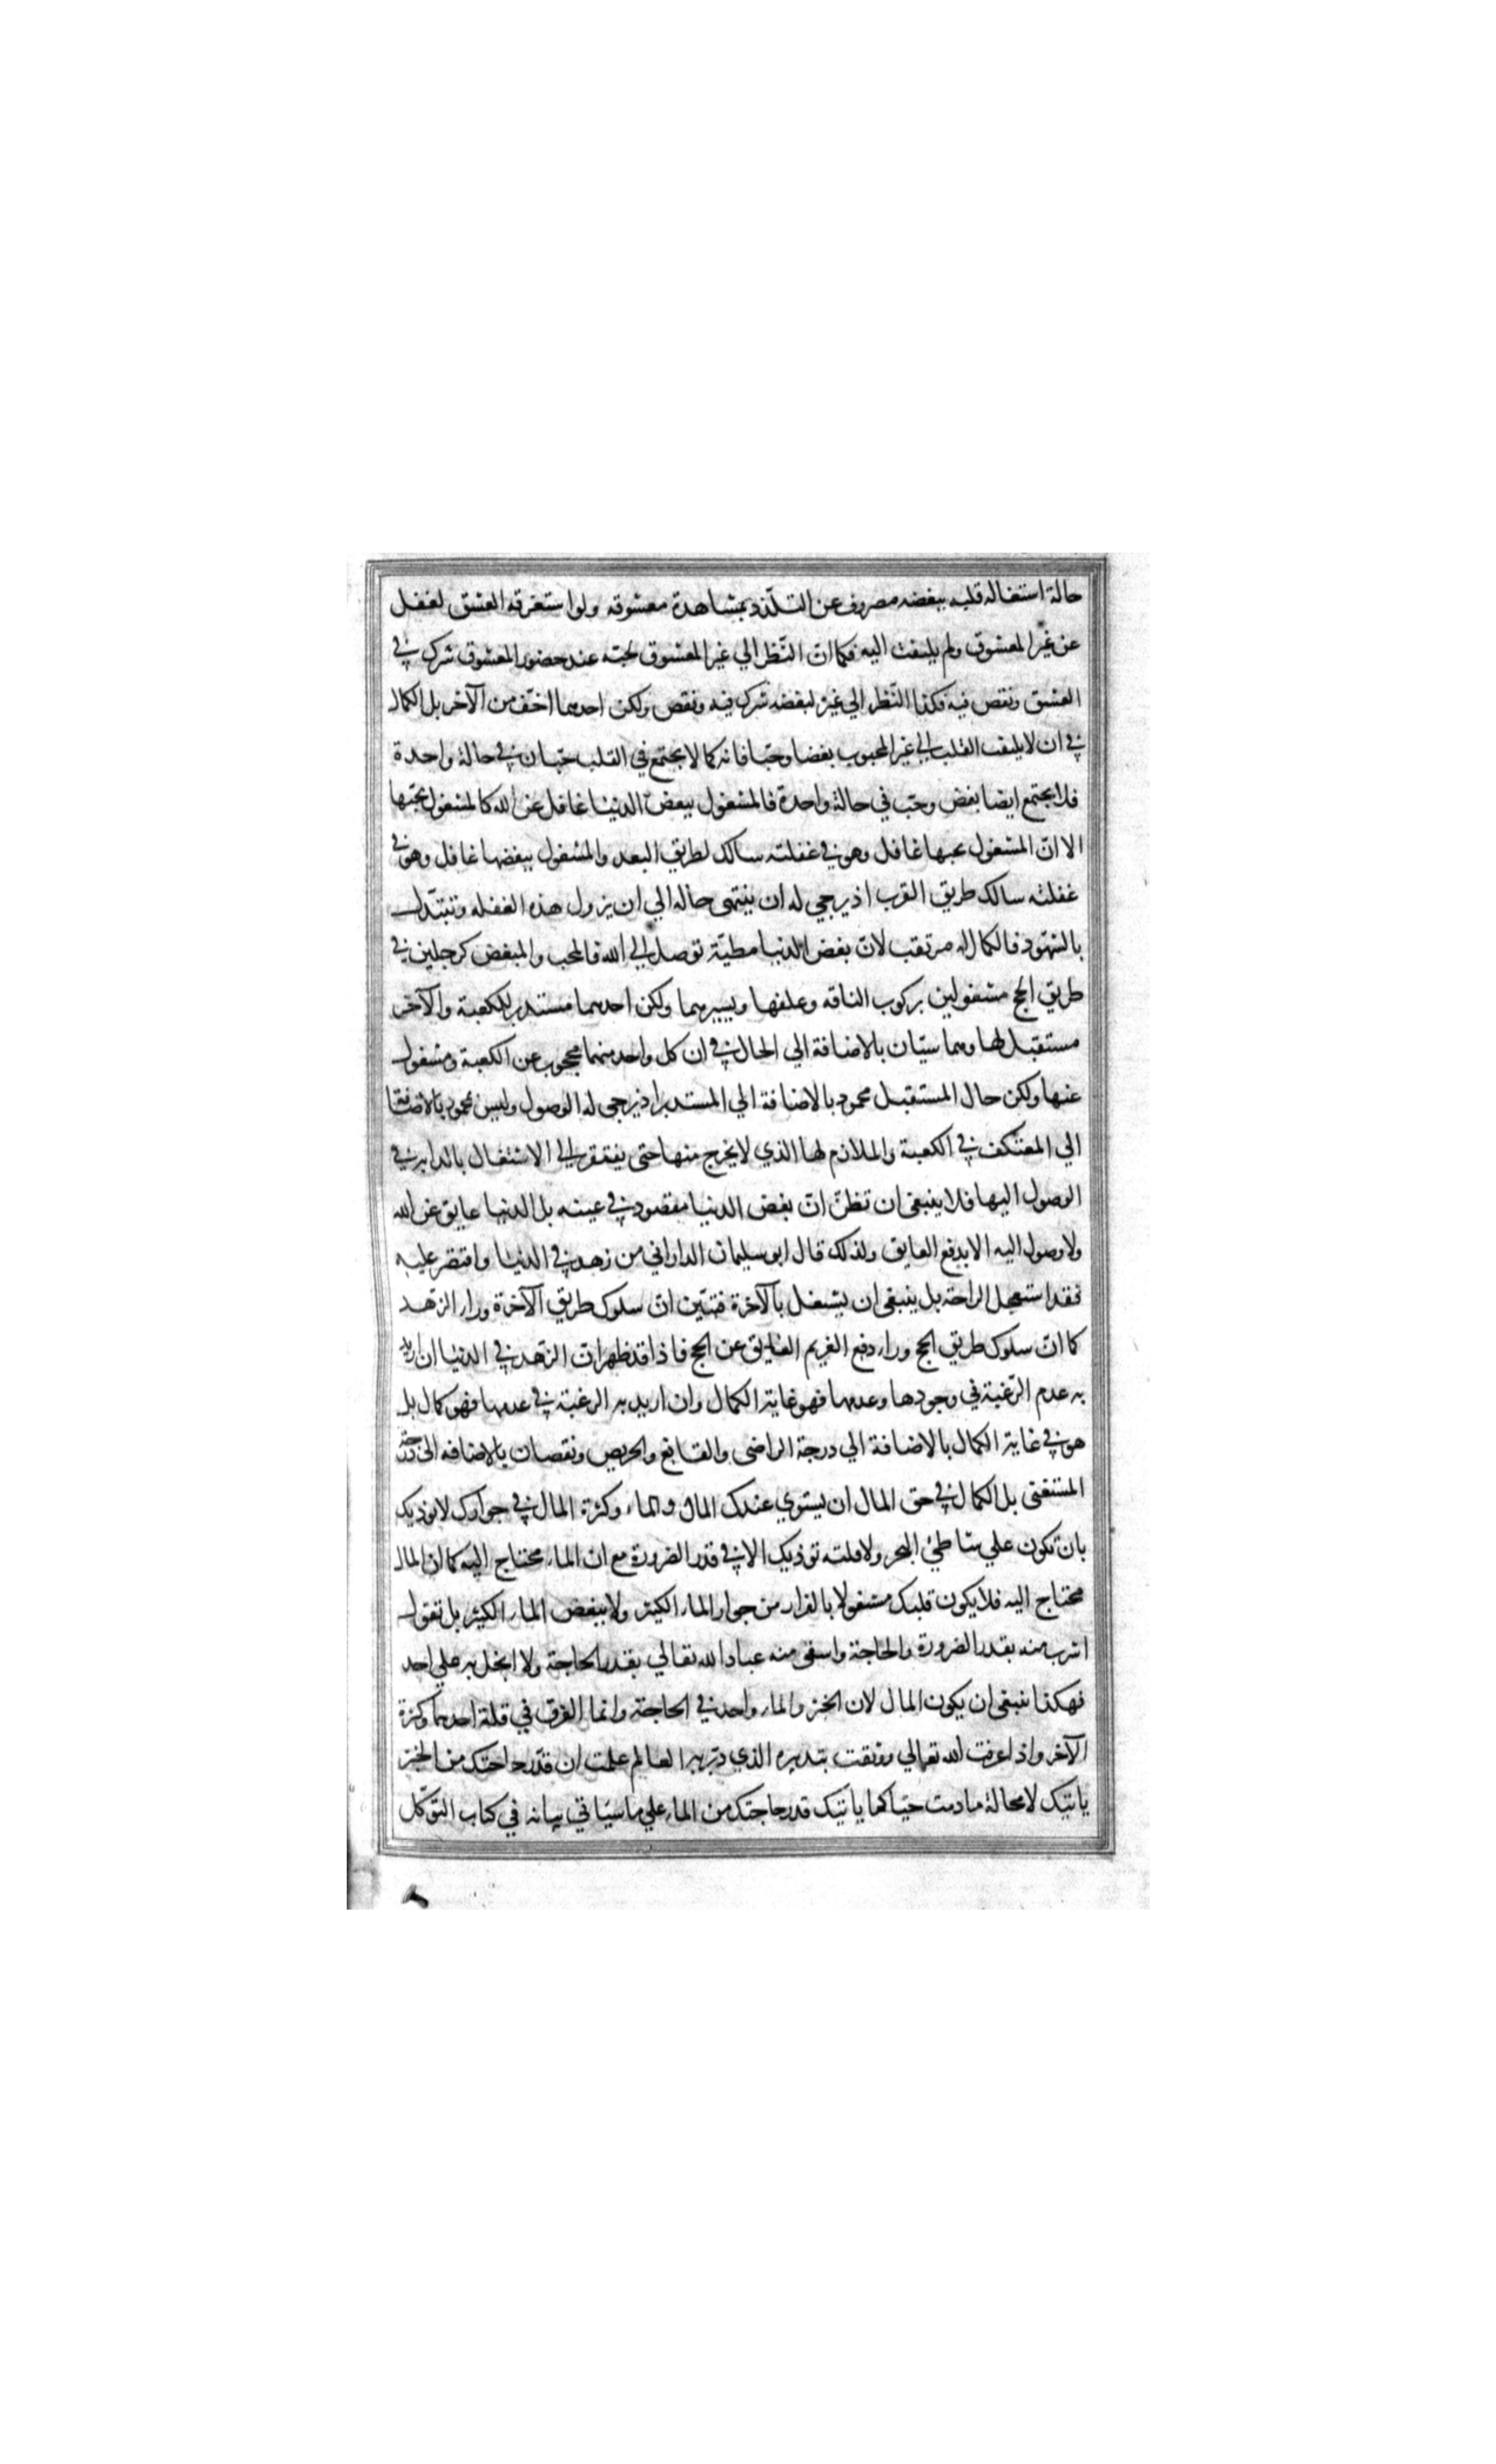 حالة اشتغاله قلبه ببغضه مصروف عن التلذذ بمشاهدة معشوقه ولو استغرقه العشق لغفل
عن غير المعشوق ولم يلتفت اليه فكما ان النظر الي غير المعشوق لحبه عند حضور المعشوق شرك في
العشق ونقص فيه فكذا النظر الي غيره لبغضه شرك فيه ونقص ولكن احدهما اخف من الآخر بل الكمال
في ان لا يلتفت القلب الي غير المحبوب بغضا وحبا فانه كما لا يجتمع في القلب حبان في حالة واحدة
فلا يجتمع ايضا بغض وحب في حالة واحدة فالمشغول ببغض الدنيا غافل عن الله كالمشغول بحبها
الا ان المشغول بحبها غافل وهو في غفلته سالك لطريق البعد والمشغول ببغضها غافل وهو في
غفلته سالك طريق القرب اذ يرجي له ان ينتهي حاله الي ان يزول هذه الغفله وتتبدل
بالشهود فالكمال له مرتقب لان بغض الدنيا مطية توصل الي الله فالمحب والمبغض كرجلين في
طريق الحج مشغولين بركوب الناقه وعلفها وبسيرهما ولكن احدهما مستدبر للكعبة والآخر
مستقبل لها وهما سيان بالاضافة الي الحال في ان كل واحد منهما محجوب عن الكعبة ومشغول
عنها ولكن حال المستقبل محمود بالاضافة الي المستدبر اذ يرجي له الوصول وليس محمود بالاضافة
الي المعتكف في الكعبة والملازم لها الذي لا يخرج منها حتى يفتقر الي الاشتغال بالدابر في
الوصول اليها فلا ينبغي ان تظن ان بغض الدنيا مقصود في عينه بل الدنيا عايق عن الله
ولا وصول اليه الا بدفع العايق ولذلك قال ابو سليمان الداراني من زهد في الدنيا واقتصر عليه
فقد استعجل الراحة بل ينبغي ان يشتغل بالآخرة فتبين ان سلوك طريق الآخرة وراء الزهد
كما ان سلوك طريق الحج وراء دفع الغريم العايق عن الحج فاذا قد ظهر ان الزهد في الدنيا ان اريد
به عدم الرغبة في وجودها وعدمها فهو غاية الكمال وان اريد به الرغبة في عدمها فهو كمال بل
هو في غاية الكمال بالاضافة الي درجة الراضي والقانع والحريص ونقصان بالاضافه الي درجة
المستغني بل الكمال في حق المال ان يستوي عندك المال والماء وكثرة المال في جوارك لا يوذيك
بان تكون علي شاطئ البحر ولا قلته توذيك الا في قدر الضرورة مع ان الماء محتاج اليه كما ان المال
محتاج اليه فلا يكون قلبك مشغولا بالفرار من جوار الماء الكثير ولا ببغض الماء الكثير بل تقول
اشرب منه بقدر الضرورة والحاجة واسقي منه عباد الله تعالي بقدر الحاجة ولا ابخل به علي احد
فهكذا ينبغي ان يكون المال لان الخبز والماء واحد في الحاجة وانما الفرق في قلة احدهما وكثرة
الآخر واذا عرفت الله تعالي ووثقت بتدبيره الذي دبر به العالم علمت ان قدر حاجتك من الخبز
ياتيك لا محالة ما دمت حيا كما ياتيك قدر حاجتك من الماء علي ما سياتي بيانه في كتاب التوكل